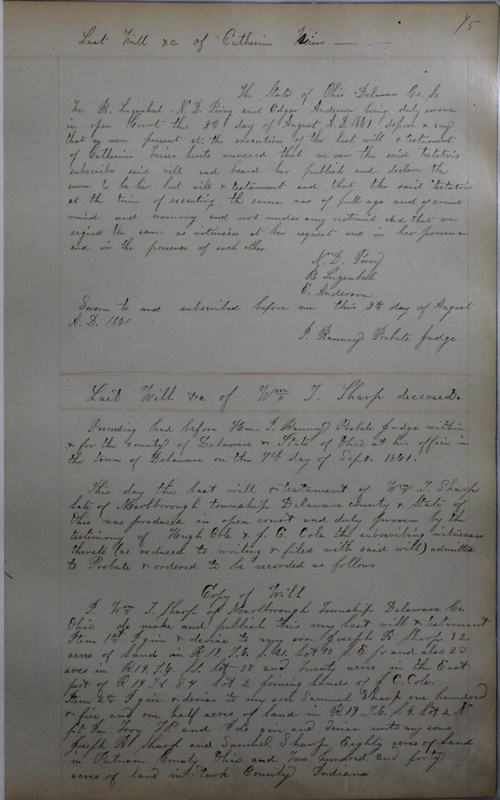 95
Last Will &c of Catherine
The State of Ohio Delaware Co. Ss
We B. Luginbel N. D. Perry and Edgar Anderson being duly sworn
in open Court this 2nd day of August A.D. 1861 depose & say
that we were present at the execution of the last will & testament
of Catherine hereto annexed that we saw the said testatrix
subscribe said will and heard her publish and declare the
same to be her last will & testament and that the said testatrix
at the time of executing the same was of full age and of sound
mind and memory and not under any restraint and that we
signed the same as witnesses at her request and in her presence
and in the presence of each other
N. D. Perry
B. Luginbel
E. Anderson
Sworn to and subscribed before me this 2nd day of August
A. D. 1861
J. Ranney Probate Judge
Last Will &c of Wm T. Sharp deceased.
Proceeding had before Hon. J. Ranney Probate Judge within
& for the County of Delaware & State of Ohio at his office in
the town of Delaware on the 7th day of Sept. 1861.
This day the last will & testament of Wm T. Sharp
late of Marlborough township Delaware County & State of
Ohio was produced in open court and duly proven by the
testimony of Hugh Cole & J. C. Cole the subscribing witnesses
thereto (as reduced to writing & filed with said will) admitted
to Probate & ordered to be recorded as follows
Copy of Will
I Wm T. Sharp of Marlborough Township Delaware Co.
Ohio do make and publish this my last will & testament
Item 1st I give & devise to my son Joseph R. Sharp 82
acres of land in R. 19. T. 6. lot 10 and also 20
acres in R 19. T. 6. lot 28 and Twenty acres in the East
part of R 19 lot 2 joining lands of J. C. Cole.
Item 2nd I give & devise to my son Samuel Sharp one hundred
& five and one half acres of land in R 19. T. 6. S. 4. lot 2 N
pt In Troy Tp and I do give and devise unto my sons
Joseph R. Sharp and Samuel Sharp Eighty acres of land
in Putnam County Ohio and Two hundred and forty
acres of land in Stark County Indiana